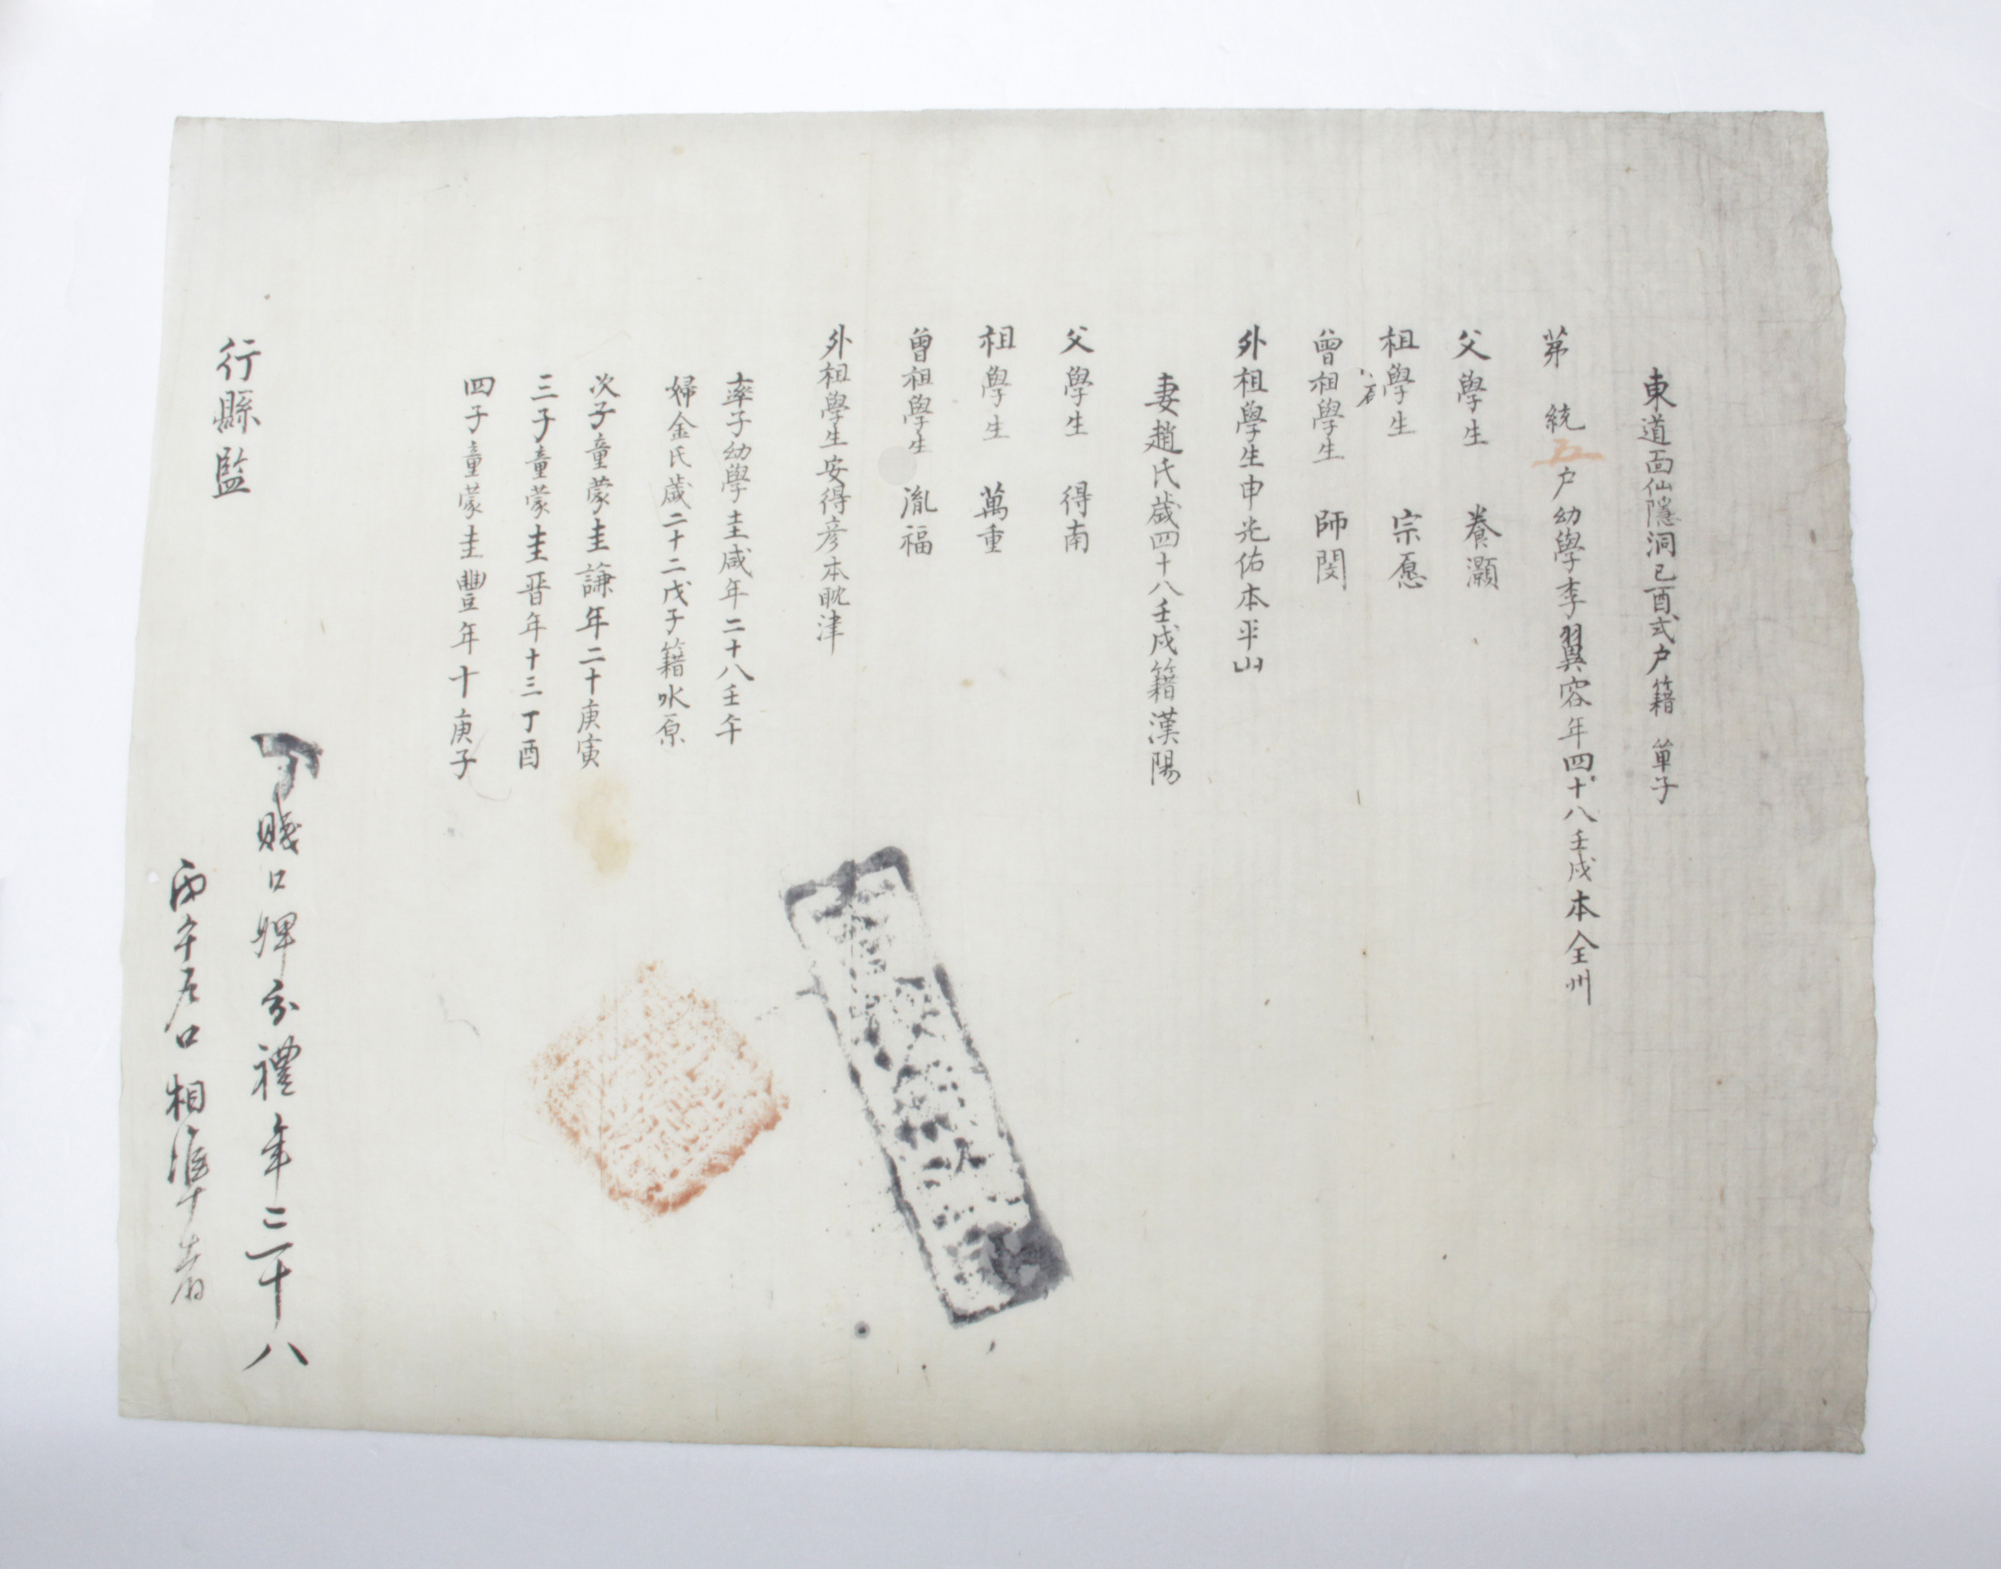 東道面仙隱洞己酉式户籍 單子
苐 統五户幼學李翼容年四十八壬戌本全州
父學生 養灝
祖學生 宗愿
曾祖學生 師閔
外祖學生申光佑本平山
妻趙氏歲四十八壬戌籍漢陽
父學生 得南
祖學生 萬重
曾祖學生 胤福
外祖學生安得彦本耽津
率子幼學圭咸年二十八壬午
婦金氏歲二十二戊子籍水原
次子童蒙圭謙年二十庚寅
三子童蒙圭晋年十三丁酉
四子童蒙圭豐年十庚子
賤口婢分禮年二十八
行縣監
丙午戶口相準者